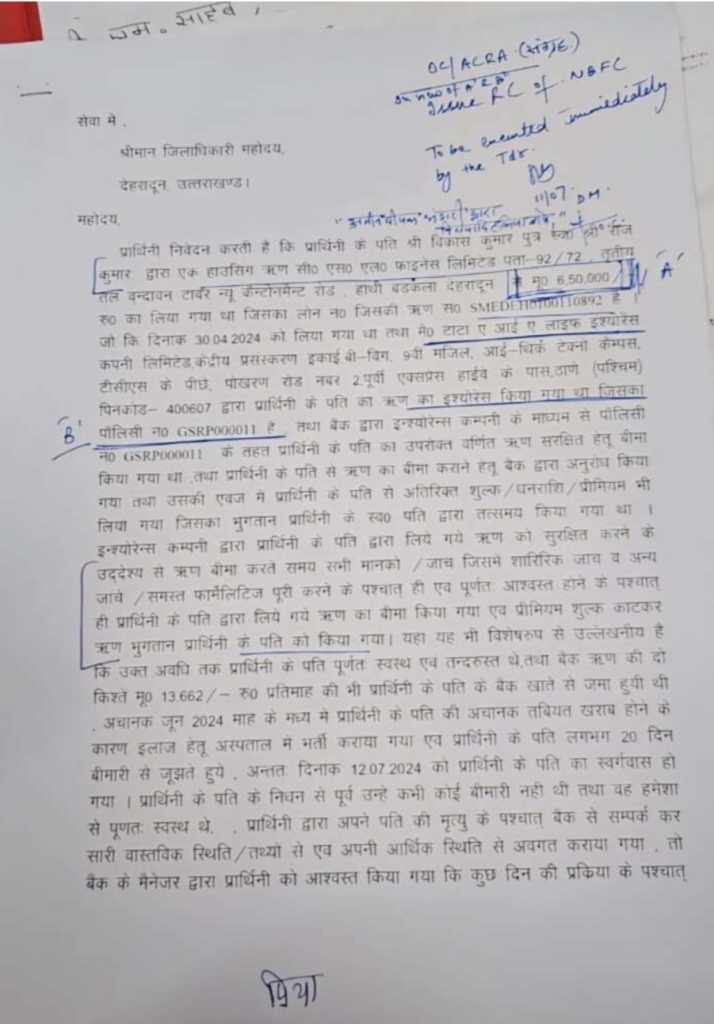 डी.एम. साहेब,
OC/ACRA (संग्रह)
in view of 'A' & 'B'
Issue RC of NBFC
To be executed immediately
by the Tdr.
11/07 DM
सेवा में,
श्रीमान जिलाधिकारी महोदय,
देहरादून, उत्तराखण्ड।
महोदय,
प्रार्थिनी निवेदन करती है कि प्रार्थिनी के पति श्री विकास कुमार पुत्र स्व० श्री राज
कुमार द्वारा एक हाउसिग ऋण सी० एस० एल० फाइनेस लिमिटेड पता-92/72, तृतीय
तल वन्दावन टावॅर न्यू कॅन्टोनमेन्ट रोड, हाथी बडकला देहरादून से मू0 6,50,000/
रु0 का लिया गया था जिसका लोन न0 जिसकी ऋण स0 है
जो कि दिनाक 30.04.2024 को लिया गया था तथा मे0 टाटा ए आई ए लाइफ इश्योरेस
कंपनी लिमिटेड,केंद्रीय प्रसस्करण इकाई,बी-विग, 9वी मजिल, आई-थिंक टेक्नो कैम्पस,
टीसीएस के पीछे, पोखरण रोड नंबर 2,पूर्वी एक्सप्रेस हाईवे के पास,ठाणे (पश्चिम)
पिनकोड- 400607 द्वारा प्रार्थिनी के पति का ऋण का इश्योरेस किया गया था जिसका
'B' पॉलिसी न0 GSRP000011 है, तथा बैक द्वारा इन्श्योरेन्स कम्पनी के माध्यम से पॉलिसी
न0 GSRP000011 के तहत प्रार्थिनी के पति का उपरोक्त वर्णित ऋण सरक्षित हेतू बीमा
किया गया था ,तथा प्रार्थिनी के पति से ऋण का बीमा कराने हेतू बैक द्वारा अनुरोध किया
गया तथा उसकी एवज मे प्रार्थिनी के पति से अतिरिक्त शुल्क/धनराशि/प्रीमियम भी
लिया गया जिसका भुगतान प्रार्थिनी के स्व0 पति द्वारा तत्समय किया गया था ।
इन्श्योरेन्स कम्पनी द्वारा प्रार्थिनी के पति द्वारा लिये गये ऋण को सुरक्षित करने के
उद्देश्य से ऋण बीमा करते समय सभी मानको /जाच जिसमे शारिरिक जाच व अन्य
जांचे /समस्त फार्मेलिटिज पूरी करने के पश्चात् ही एव पूर्णतः आश्वस्त होने के पश्चात्
ही प्रार्थिनी के पति द्वारा लिये गये ऋण का बीमा किया गया एव प्रीमियम शुल्क काटकर
ऋण भुगतान प्रार्थिनी के पति को किया गया। यहा यह भी विशेषरुप से उल्लेखनीय है
कि उक्त अवधि तक प्रार्थिनी के पति पूर्णतः स्वस्थ एव तन्दरुस्त थे,तथा बैक ऋण की दो
किश्ते मू0 13,662/- रु0 प्रतिमाह की भी प्रार्थिनी के पति के बैक खाते से जमा हुयी थी
, अचानक जून 2024 माह के मध्य मे प्रार्थिनी के पति की अचानक तबियत खराब होने के
कारण इलाज हेतू अस्पताल मे भर्ती कराया गया एव प्रार्थिनी के पति लगभग 20 दिन
बीमारी से जूझते हुये , अन्ततः दिनाक 12.07.2024 को प्रार्थिनी के पति का स्वर्गवास हो
गया । प्रार्थिनी के पति के निधन से पूर्व उन्हे कभी कोई बीमारी नही थी तथा वह हमेशा
से पूणतः स्वस्थ थे, , प्रार्थिनी द्वारा अपने पति की मृत्यु के पश्चात् बैक से सम्पर्क कर
सारी वास्तविक स्थिति/तथ्यो से एव अपनी आर्थिक स्थिति से अवगत कराया गया , तो
बैक के मैनेजर द्वारा प्रार्थिनी को आश्वस्त किया गया कि कुछ दिन की प्रकिया के पश्चात्
'A'
प्रिया